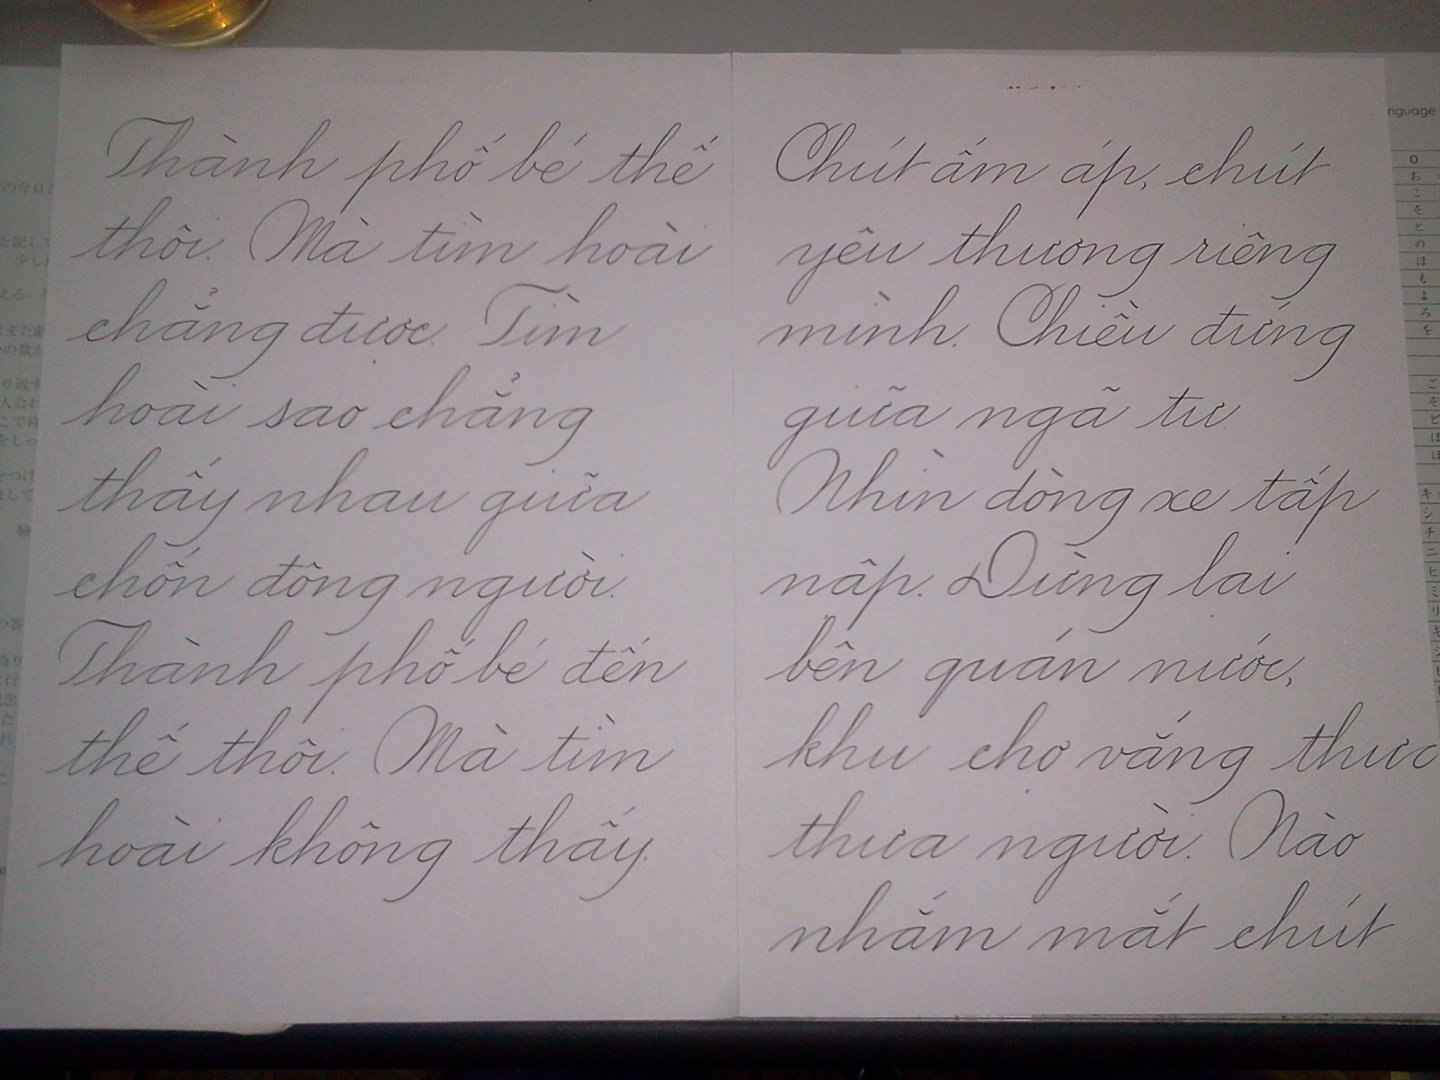 Thành phố bé thế
thôi. Mà tìm hoài
chẳng được. Tìm
hoài sao chẳng
thấy nhau giữa
chốn đông người.
Thành phố bé đến
thế thôi. Mà tìm
hoài không thấy.
Chút ấm áp, chút
yêu thương riêng
mình. Chiều đứng
giữa ngã tư.
Nhìn dòng xe tấp
nập. Dừng lại
bên quán nước,
khu chợ vắng thưc
thưa người. Nào
nhắm mắt chút
nguage